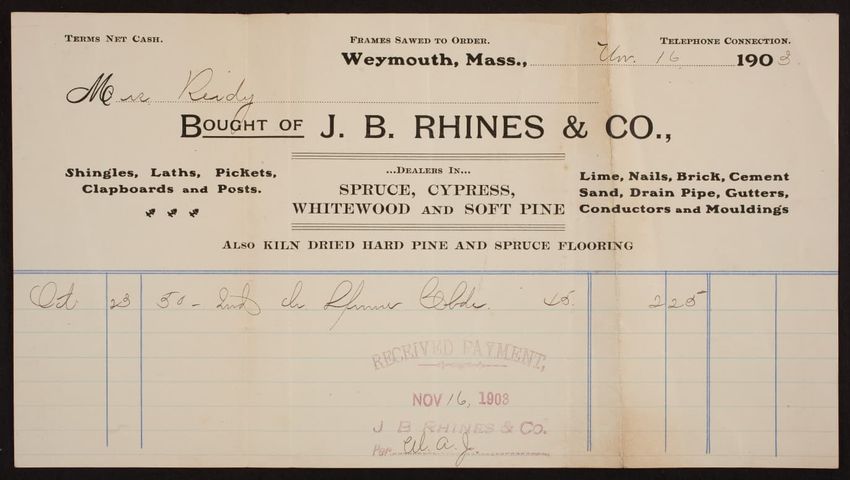 TERMS NET CASH. FRAMES SAWED TO ORDER. TELEPHONE CONNECTION.
Weymouth, Mass., Nov. 16 1903.
M Reidy
BOUGHT OF J. B. RHINES & CO.,
Shingles, Laths, Pickets,
Clapboards and Posts.
...DEALERS IN...
SPRUCE, CYPRESS,
WHITEWOOD AND SOFT PINE
Lime, Nails, Brick, Cement
Sand, Drain Pipe, Gutters,
Conductors and Mouldings
ALSO KILN DRIED HARD PINE AND SPRUCE FLOORING
Oct 23 50 - 2nd Clbds. 45. 2 25
RECEIVED PAYMENT,
NOV 16, 1903
J B RHINES & Co.
Per